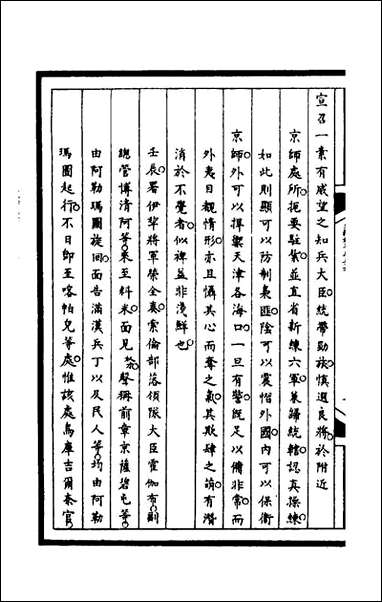 宣召一素有威望之知兵大臣統帶勁旅慎選良將於附近
京師處所扼要駐紮並直省新練六軍兼歸統轄認真操練
如此則顯可以防制梟匪陰可以震慴外國內可以保衛
京師外可以捍禦天津各海口一旦有警既足以備非常而
外夷目覩情形亦且懾其心而奪之氣其欺肆之萌有潛
消於不覺者似裨益非淺鮮也
壬辰署伊犂將軍榮全奏索倫部落領隊大臣霍伽布副
總管博清阿等來至料米面見奴才聲稱前韋京薩碧屯等
由阿勒瑪圖旋回面告滿漢兵丁以及民人等均由阿勒
瑪圖起行不日即至喀帕兒等處惟該處烏庫吉爾奈官